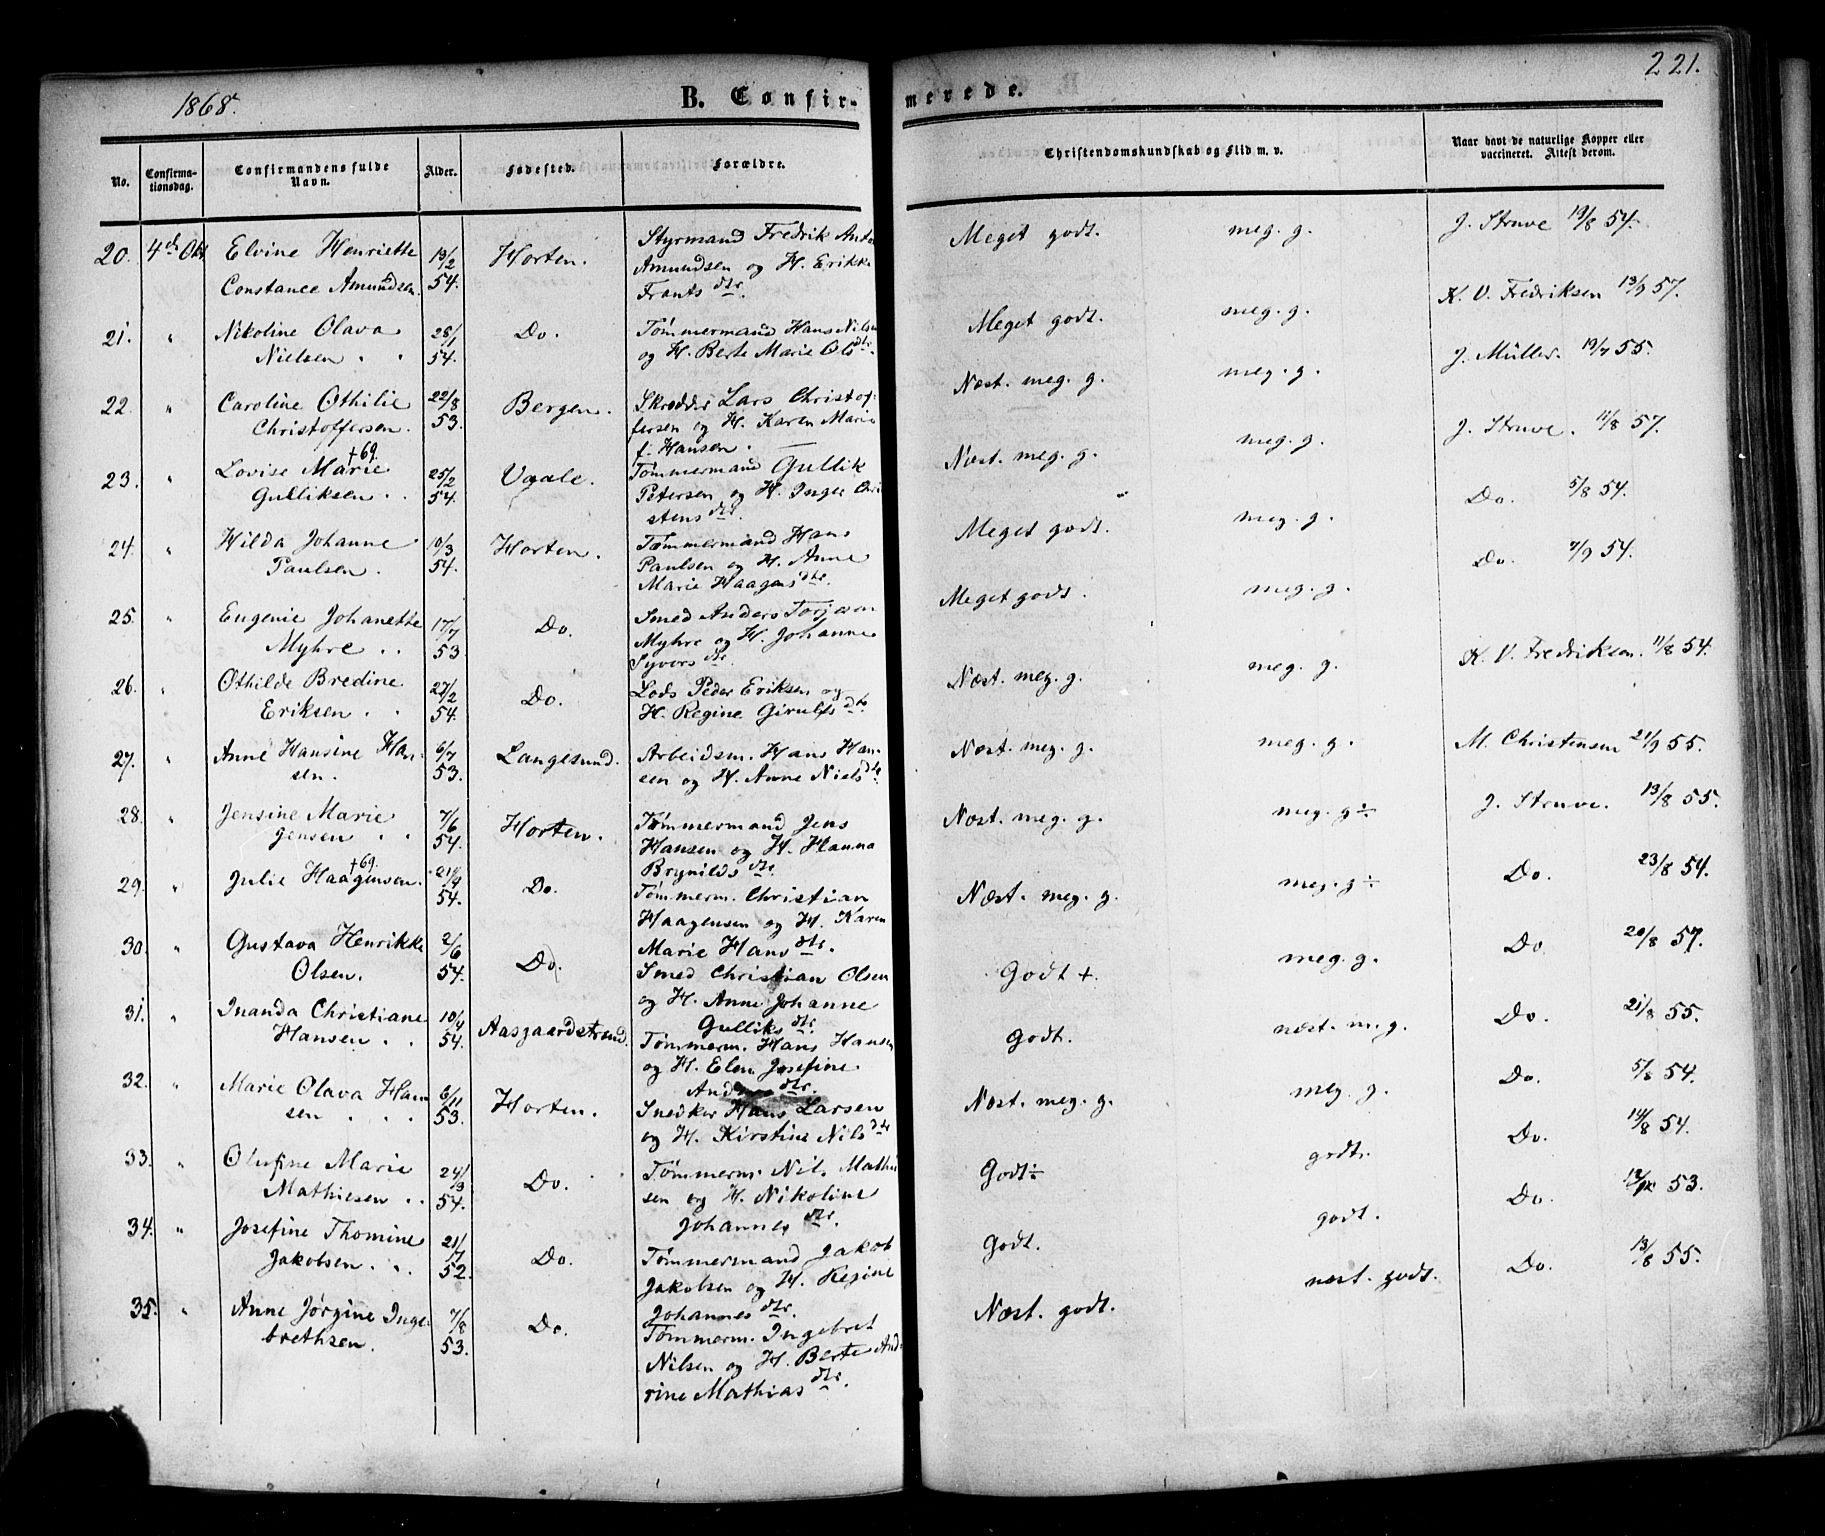 1868.
B. Confir-
merede.
221.
No.
Confirma-
tionsdag.
Confirmandens fulde
Navn.
Alder.
Fødested.
Forældre.
Christendomskundskab og Flid m. v.
Naar havt de naturlige Kopper eller
vaccineret. Attest derom.
20. 4de Okt Elvine Henriette 19/2 Horten. Styrmand Fredrik Anto Meget godt. meg. g. J. Struve 19/8 54.
Constance Amundsen. 54. Amundsen og H. Erikke
Frants dtr.
21. " Nikoline Olava 28/1 Do. Tømmermand Hans Nilsen Meget godt. meg. g. K. V. Fredriksen 13/9 57.
Nielsen . . 54. og H. Berte Marie Ols dtr.
22. " Caroline Othilie 22/8 Bergen. Skrædder Lars Christof- Næst. meg. g. meg. g. J. Müller. 19/7 55.
Christoffersen. 53. fersen og H. Karen Marie
f. Hansen.
+69.
23. " Lovise Marie 25/2 Vaale. Tømmermand Gullik Næst. meg. g. meg. g. J. Struve. 11/8 57.
Gulliksen . . 54. Petersen og H. Inger Chri
stens dtr.
24. " Hilda Johanne 10/3 Horten. Tømmermand Hans Meget godt. meg. g. Do. 5/8 54.
Paulsen. 54. Paulsen og H. Anne
Marie Haagens dtr.
25. " Eugenie Johanette 17/7 Do. Smed Anders Torjesen Meget godt. meg. g. Do. 7/9 54.
Myhre . . 53 Myhre og H. Johanne
Syvers dtr.
26. " Othilde Bredine 27/2 Do. Lods Peder Eriksen og Næst. meg. g. meg. g. K. V. Fredriksen. 11/8 54.
Eriksen . . 54. H. Regine Girulfs dtr
27. " Anne Hansine Han- 6/7 Langesund. Arbeidsm. Hans Han- Næst. meg. g. meg. g. M. Christensen 21/9 55.
sen. 53. sen og H. Anne Niels dtr
28. " Jensine Marie 7/6 Horten. Tømmermand Jens Næst. meg. g. meg. g÷ J. Struve. 13/8 55.
Jensen . . 54. Hansen og H. Hanna
Brynilds dtr.
+69.
29. " Julie Haagensen. 21/4 Do. Tømmerm. Christian Næst. meg. g. meg. g÷ Do. 23/8 54.
54. Haagensen og H. Karen
Marie Hans dtr.
30. " Gustava Henrikke 2/6 Do. Smed Christian Olsen Godt +. meg. g. Do. 20/8 57.
Olsen. 54. og H. Anne Johanne
Gulliks dtr.
31. " Inanda Christiane 10/4 Aasgaardstrand. Tømmerm. Hans Hansen Godt. næst. m. g. Do. 21/8 55.
Hansen . . 54. og H. Elen Josefine
dtr.
32. " Marie Olava Han 6/11 Horten. Snedker Hans Larsen Næst. meg. g. meg. g. Do. 5/8 54.
sen . . . 53. og H. Kirstine Nils dtr
33. " Olufine Marie 24/3 Do. Tømmerm. Nils Mathi Godt÷ godt. Do. 14/8 54.
Mathiesen . . 54. sen og H. Nikoline
Johannes dtr.
34. " Josefine Thomine 21/7 Do. Tømmermand Jakob Godt. godt. Do. 53.
Jakobsen . . 52. Jakobsen og H. Regine
Johannes dtr.
35. " Anne Jørgine Inge 7/8 Do. Tømmerm. Ingebret Næst. godt. næst. godt. Do. 13/8 55.
brethsen. 53. Nilsen og H. Berte And
rine Mathias dtr.